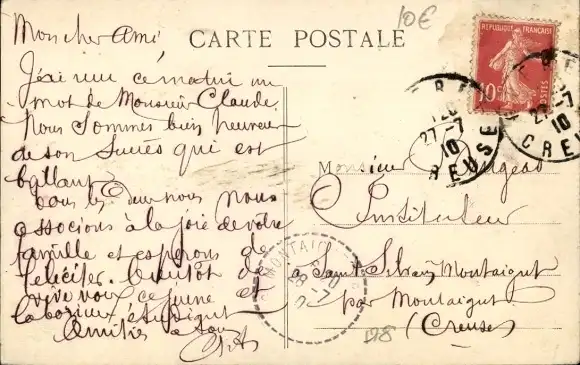 10€
CARTE POSTALE
REPUBLIQUE FRANÇAISE
10c
POSTES
27-7
10
CREUSE
Mon cher Ami,
J'ai reçu ce matin un
mot de Monsieur Claude.
Nous sommes bien heureux
de son succès qui est
brillant
Tous les deux nous nous
associons à la joie de votre
famille et espérons de
féliciter bientôt de
vive voix ce jeune et
laborieux étudiant
Amitiés à tous
Monsieur
Instituteur
à Saint Silvain Montaigut
par Montaigut
(Creuse)
MONTAIGUT
28-7